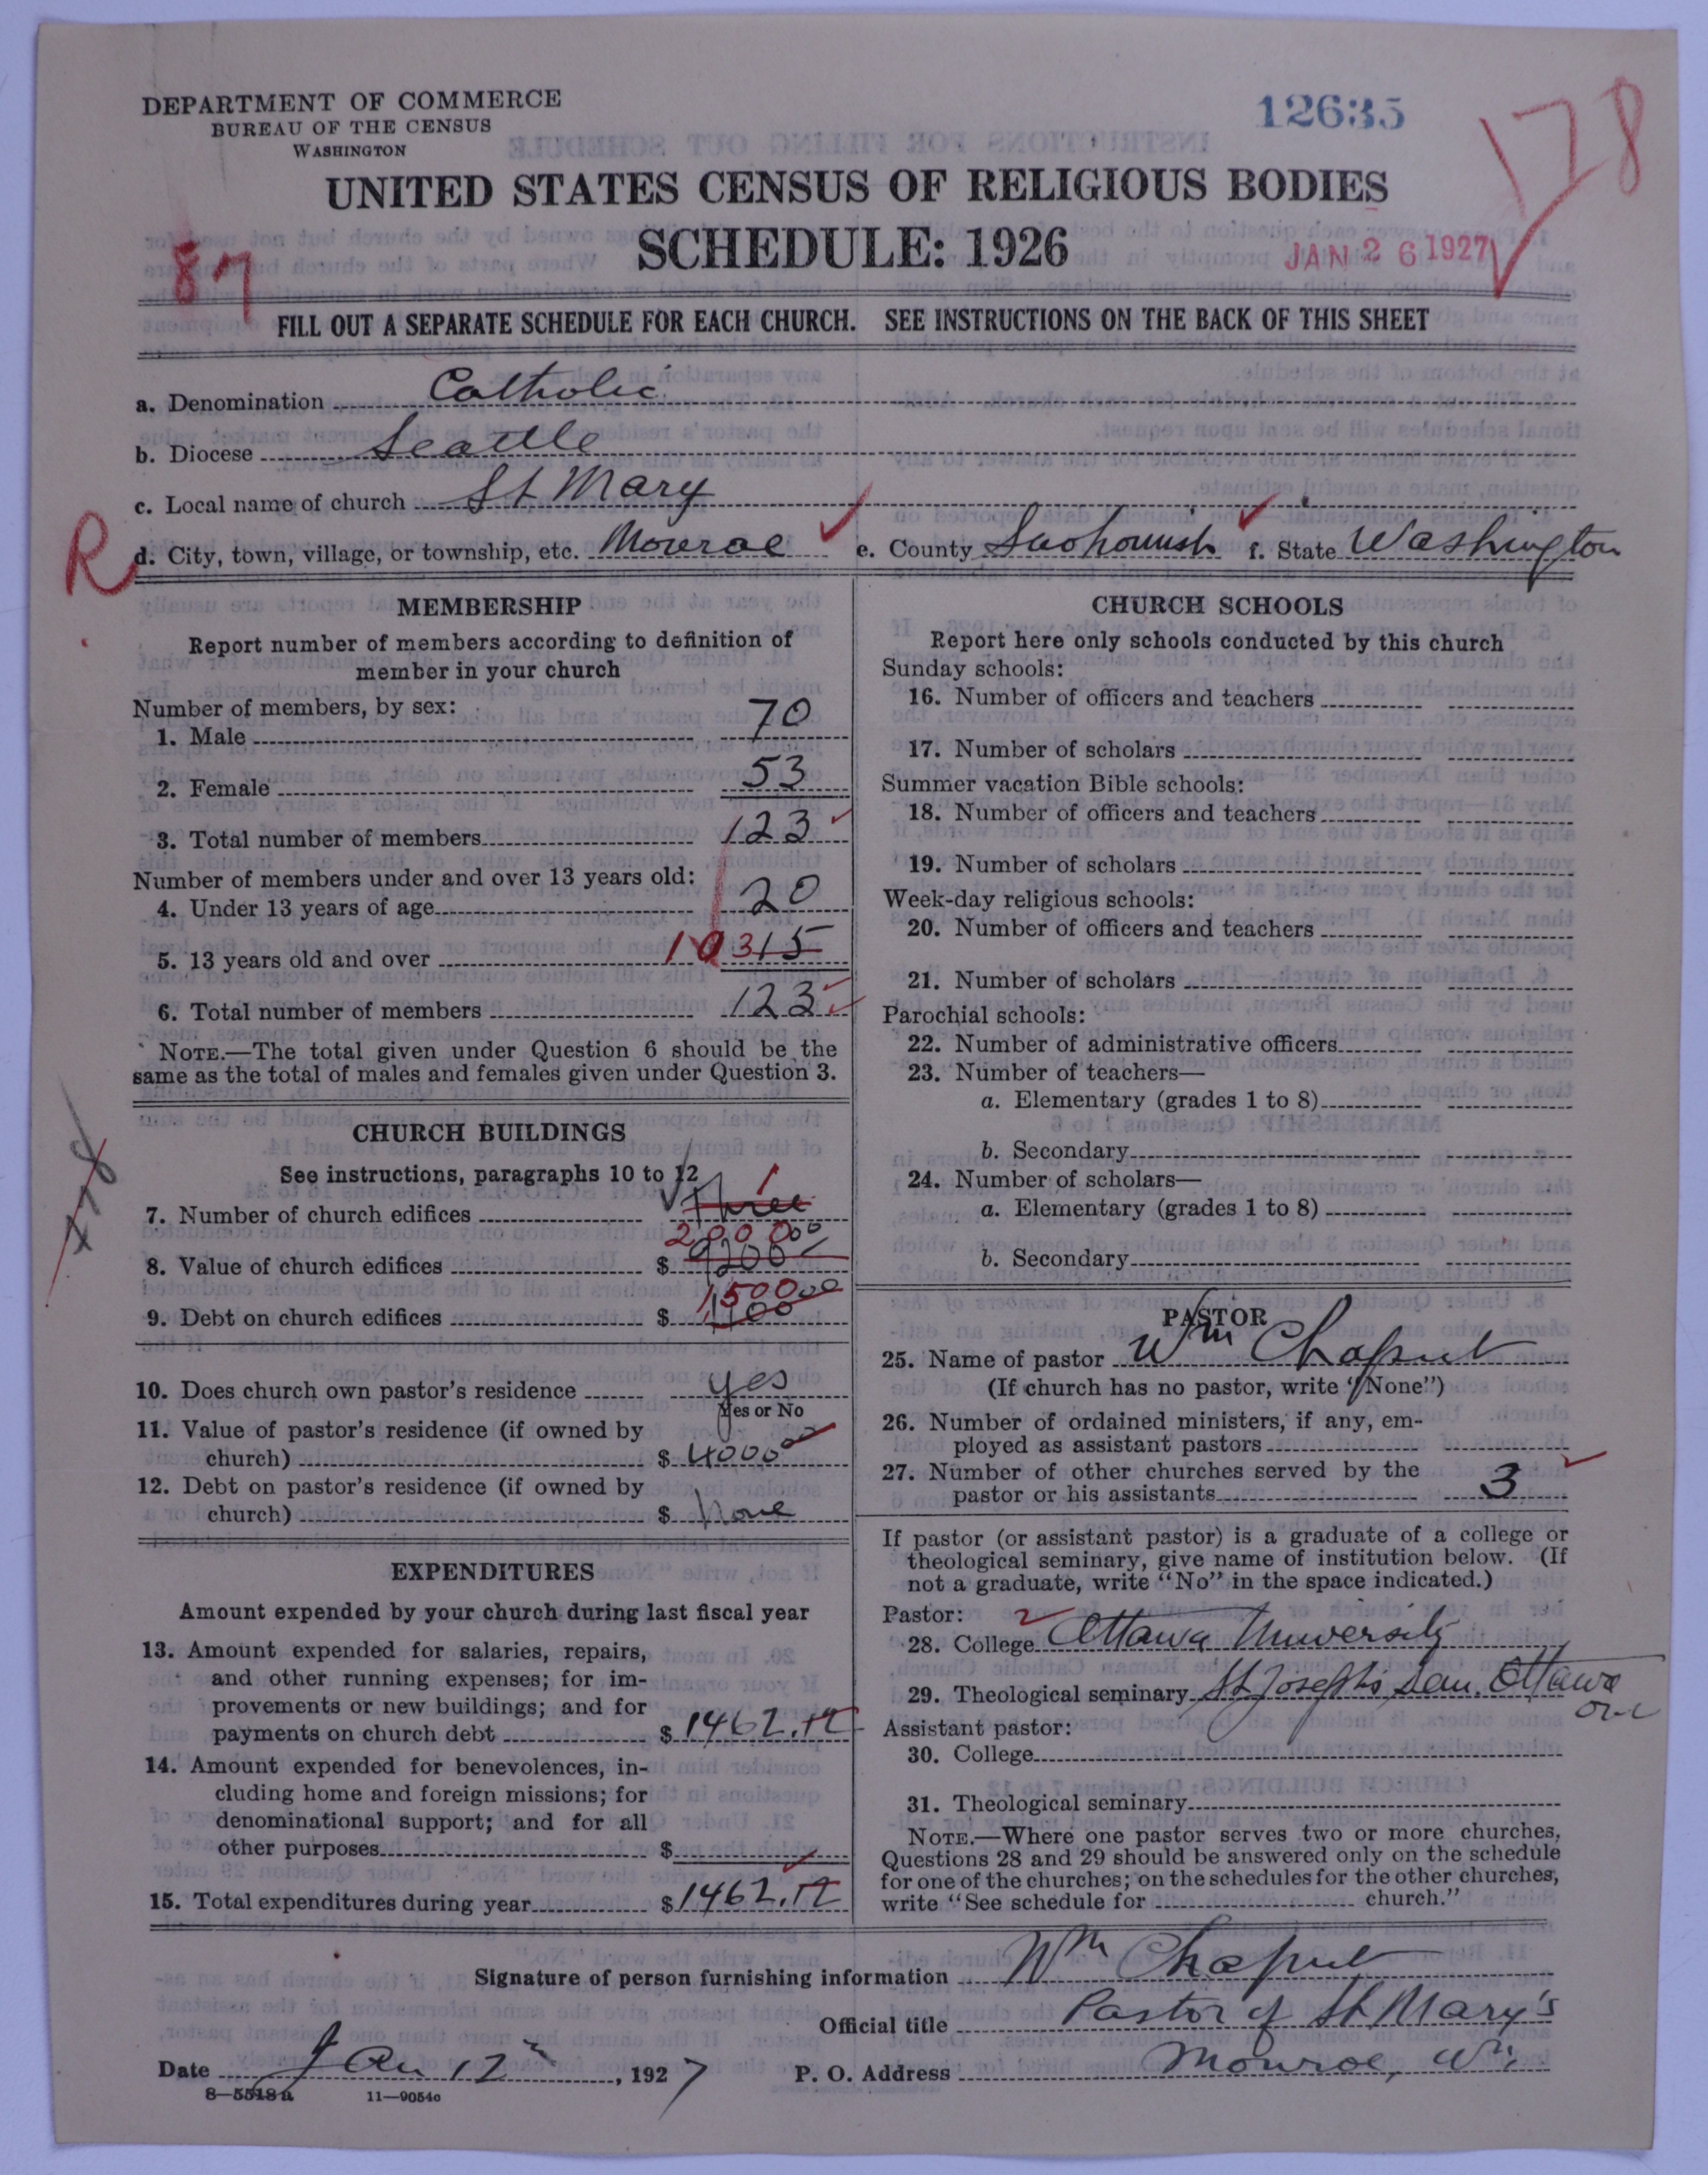 DEPARTMENT OF COMMERCE
BUREAU OF THE CENSUS
WASHINGTON
12635
178
UNITED STATES CENSUS OF RELIGIOUS BODIES
SCHEDULE: 1926
JAN 26 1927
87
FILL OUT A SEPARATE SCHEDULE FOR EACH CHURCH. SEE INSTRUCTIONS ON THE BACK OF THIS SHEET
a. Denomination Catholic
b. Diocese Seattle
c. Local name of church St Mary
R
d. City, town, village, or township, etc. Monroe e. County Snohomish f. State Washington
MEMBERSHIP
Report number of members according to definition of
member in your church
Number of members, by sex:
1. Male 70
2. Female 53
3. Total number of members 123
Number of members under and over 13 years old:
4. Under 13 years of age 20
5. 13 years old and over 103 15
6. Total number of members 123
NOTE.—The total given under Question 6 should be the
same as the total of males and females given under Question 3.
CHURCH BUILDINGS
See instructions, paragraphs 10 to 12
1
7. Number of church edifices Three
2000
8. Value of church edifices $ 9200 00
1500
9. Debt on church edifices $ 1100 00
10. Does church own pastor's residence yes
Yes or No
11. Value of pastor's residence (if owned by
church) $ 4000 00
12. Debt on pastor's residence (if owned by
church) $ None
EXPENDITURES
Amount expended by your church during last fiscal year
13. Amount expended for salaries, repairs,
and other running expenses; for im-
provements or new buildings; and for
payments on church debt $ 1462.12
14. Amount expended for benevolences, in-
cluding home and foreign missions; for
denominational support; and for all
other purposes $
15. Total expenditures during year $ 1462.12
CHURCH SCHOOLS
Report here only schools conducted by this church
Sunday schools:
16. Number of officers and teachers
17. Number of scholars
Summer vacation Bible schools:
18. Number of officers and teachers
19. Number of scholars
Week-day religious schools:
20. Number of officers and teachers
21. Number of scholars
Parochial schools:
22. Number of administrative officers
23. Number of teachers—
a. Elementary (grades 1 to 8)
b. Secondary
24. Number of scholars—
a. Elementary (grades 1 to 8)
b. Secondary
PASTOR
25. Name of pastor Wm Chaput
(If church has no pastor, write "None")
26. Number of ordained ministers, if any, em-
ployed as assistant pastors
27. Number of other churches served by the
pastor or his assistants 3
If pastor (or assistant pastor) is a graduate of a college or
theological seminary, give name of institution below. (If
not a graduate, write "No" in the space indicated.)
Pastor:
28. College Ottawa University
29. Theological seminary St Joseph's Sem. Ottawa
Ont
Assistant pastor:
30. College
31. Theological seminary
NOTE.—Where one pastor serves two or more churches,
Questions 28 and 29 should be answered only on the schedule
for one of the churches; on the schedules for the other churches,
write "See schedule for church."
Signature of person furnishing information Wm Chaput
Official title Pastor of St Mary's
Date Jan 12th, 1927 P. O. Address Monroe, Wn.
8—5518a 11—9054c